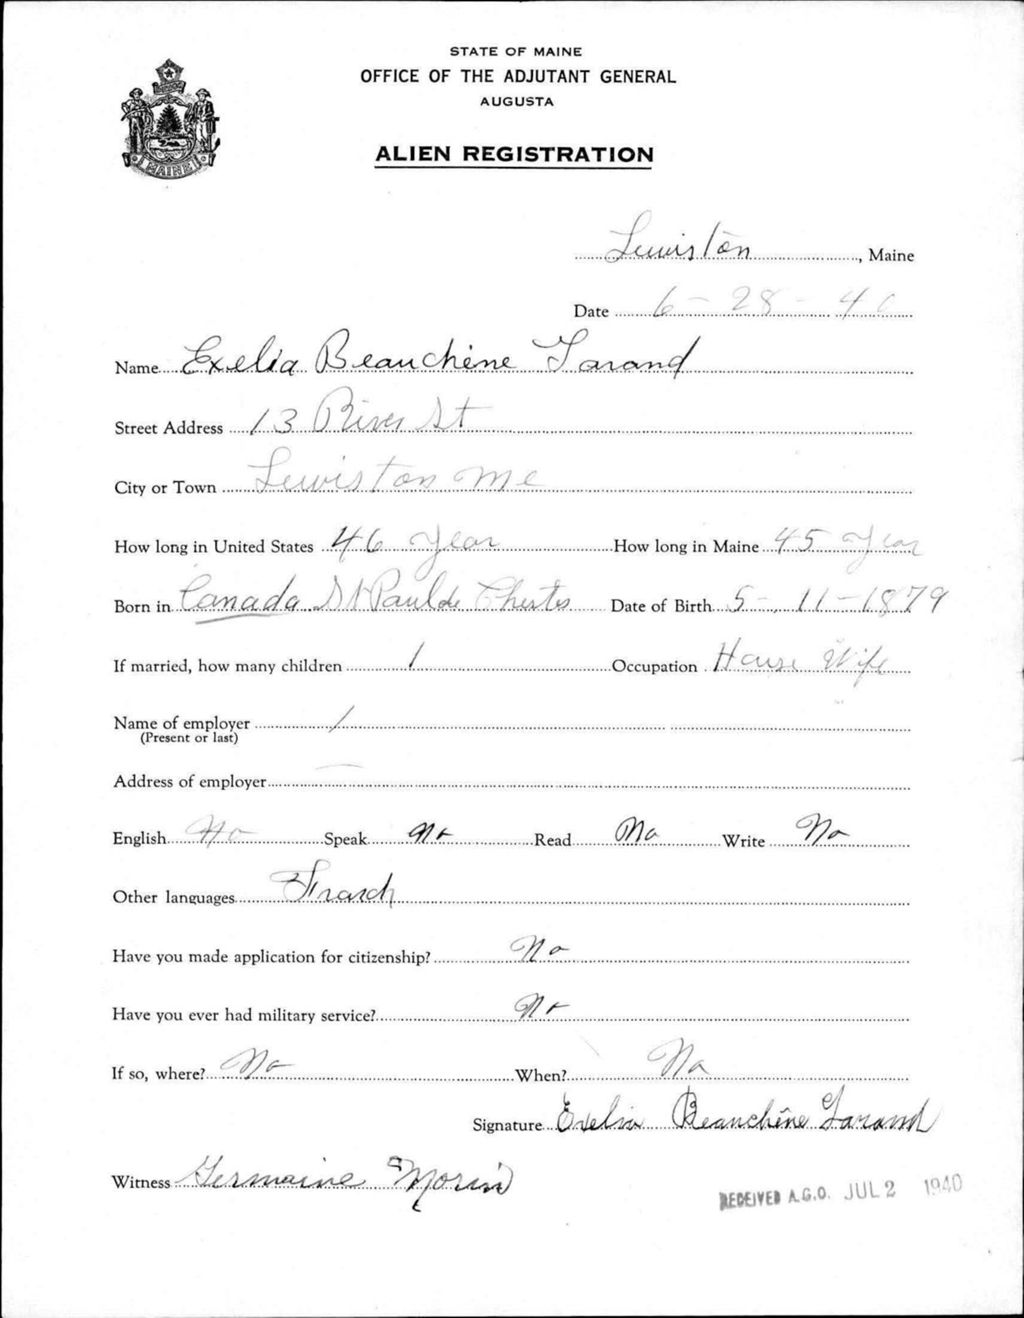 STATE OF MAINE
OFFICE OF THE ADJUTANT GENERAL
AUGUSTA
ALIEN REGISTRATION
MAINE
Lewiston, Maine
Date 6-28-40
Name Exelia Beauchène
Street Address 13 River St
City or Town Lewiston Me
How long in United States 46 Year How long in Maine 45 Year
Born in Canada St Paul de Date of Birth 5-11-1879
If married, how many children 1 Occupation House Wife
Name of employer /
(Present or last)
Address of employer —
English No Speak No Read No Write No
Other languages
Have you made application for citizenship? No
Have you ever had military service? No
If so, where? No When? No
Signature Exelia Beauchêne
Witness Germaine Morin
RECEIVED A.G.O. JUL 2 1940